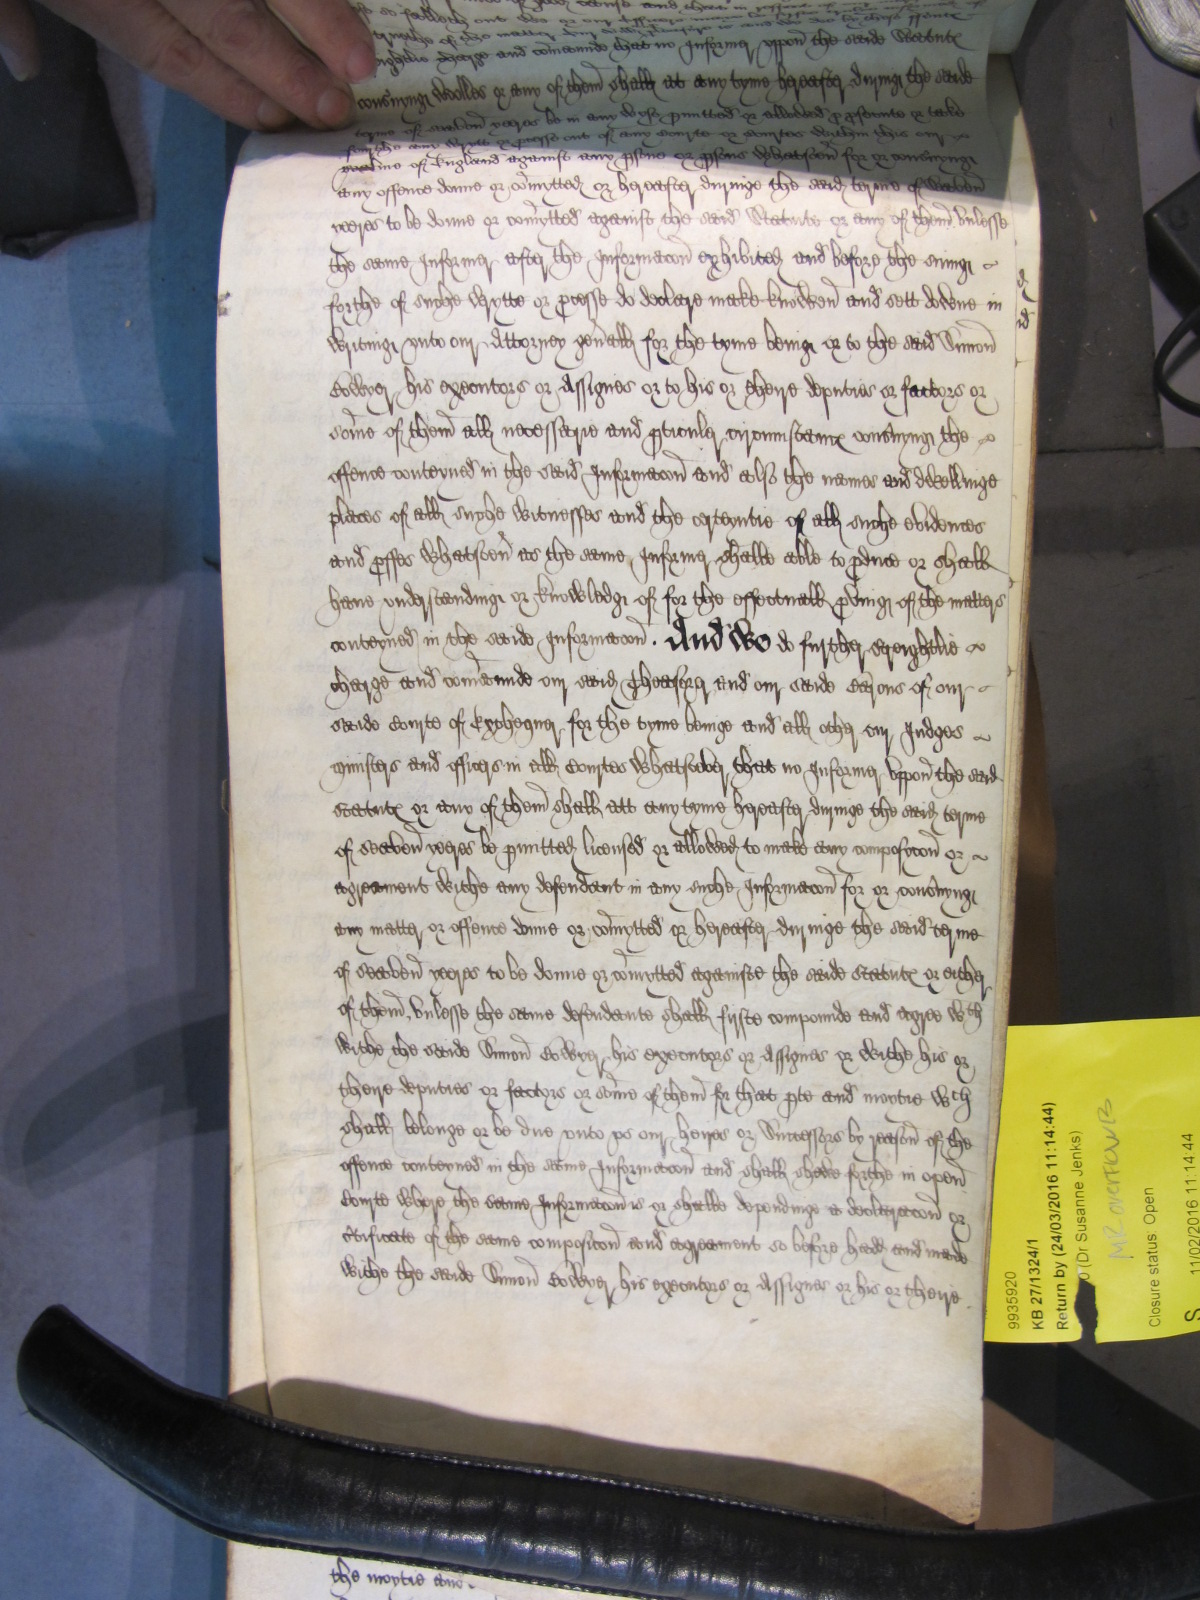 straightlie charge and comaunde that no Informer uppon the saide Statute
conc'nynge Wolles or any of them shall at any tyme hereafter duringe the saide
terme of Seaven yeeres be in any wyse p'mitted or allowed to p'secute or take
forthe any wrytt or p'cesse out of any Courte or Courtes within this our
realme of England against any p'sone or p'sons whatsoev' for or conc'nynge
any offence donne or co'mytted or hereafter duringe the said terme of Seaven
yeeres to be donne or com'ytted against the said Statute or any of them Unlesse
the same Informer after the Informacon exhibited and before the suinge
forthe of suche Wrytte or p'cesse do declare make knowen and sett downe in
Writinge unto our Attorney gen'all for the tyme beinge or to the said Simon
Bowyer his executors or Assignes or to his or theire deputies or factors or
some of them all necessarie and p'ticuler circumstance conc'nynge the
offence conteyned in the said Informacon and also the names and dwellinge
places of all suche Witnesses and the certeyntie of all suche evidences
and p'ffes Whatsoev' as the same Informer shalbe able to p'duce or shall
have understandinge or knowledge of for the effectuall p'vinge of the matters
conteyned in the saide Informacon. And We do further streightlie
charge and com'aunde our said Theasorer and our saide Barons of our
saide Courte of Exchequer for the tyme beinge and all other our Judges
ministers and officers in all Courtes Whatsoever that no Informer Uppon the said
Statute or any of them shall att any tyme hereafter duringe the said terme
of Seaven yeeres be p'mitted licensed or allowed to make any composycon or
agreament withe any defendant in any suche Informacon for or conc'nynge
any matter or offence donne or co'mytted or hereafter duringe the said terme
of Seaven yeeres to be donne or co'mytted againste the saide Statute or either
of them, Unlesse the same defendante shall firste compounde and agree wth
withe the saide Simon Bowyer his executors or Assignes or withe his or
theire deputies or factors or some of them for that p'te and moytie wch
shall belonge or be due unto us our heires or Successors by reason of the
offence conteyned in the same Informacon and shall shewe forthe in open
Courte where the same Informacon is or shalbe dependinge a declaracon or
c'tificate of the same composicon and agreament so before hadd and made
withe the saide Simon Bowyer his executors or Assignes or his or theire
the moytie and
9935920
KB 27/1324/1
Return by (24/03/2016 11:14:44)
(Dr Susanne Jenks)
Closure status: Open
11/02/2016 11:14:44